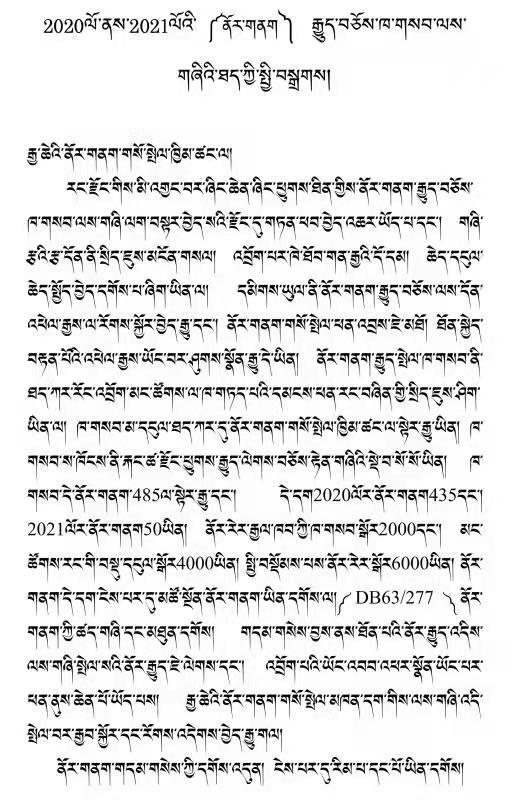 2020ལོ་ནས་2021ལོའི་ ༼ནོར་གནག༽ རྒྱུད་བཅོས་ཁ་གསབ་ལས་
གཞིའི་ཐད་ཀྱི་སྤྱི་བསྒྲགས།
རྒྱ་ཆེའི་ནོར་གནག་གསོ་སྤེལ་ཁྱིམ་ཚང་ལ།
རང་རྫོང་གིས་མི་འགྱང་བར་ཞིང་ཆེན་ཞིང་ཕྱུགས་ཐིན་གྱིས་ནོར་གནག་རྒྱུད་བཅོས་
ཁ་གསབ་ལས་གཞི་ལག་བསྟར་བྱེད་སའི་རྫོང་དུ་གཏན་ཕབ་བྱེད་འཆར་ཡོད་པ་དང་། གཞི་
རྩའི་རྩ་དོན་ནི་སྲིད་ཇུས་མངོན་གསལ། འབྲོག་པར་ཁེ་ཐོབ་གན་རྒྱའི་དོ་དམ། ཆེད་དངུལ་
ཆེད་སྤྱོད་བྱེད་དགོས་པ་ཞིག་ཡིན་ལ། དམིགས་ཡུལ་ནི་ནོར་གནག་རྒྱུད་བཅོས་ལས་དོན་
འཕེལ་རྒྱས་ལ་རོགས་སྐྱོར་བྱེད་རྒྱུ་དང་། ནོར་གནག་གསོ་སྤེལ་ཕན་འབྲས་ཇེ་མཐོ། ཐོན་སྐྱེད་
བརྟན་པོའི་འཕེལ་རྒྱས་ཡོང་བར་ཤུགས་སྣོན་རྒྱུ་དེ་ཡིན། ནོར་གནག་རྒྱུད་སྤེལ་ཁ་གསབ་ནི་
ཐད་ཀར་རོང་འབྲོག་མང་ཚོགས་ལ་ཁ་གཏད་པའི་དམངས་ཕན་རང་བཞིན་གྱི་སྲིད་ཇུས་ཤིག་
ཡིན་ལ། ཁ་གསབ་མ་དངུལ་ཐད་ཀར་དུ་ནོར་གནག་གསོ་སྤེལ་ཁྱིམ་ཚང་ལ་སྟེར་རྒྱུ་ཡིན། ཁ་
གསབ་ས་ཁོངས་ནི་རྐང་ཚ་རྫོང་ཕྱུགས་རྒྱུད་ལེགས་བཅོས་རྟེན་གཞིའི་སྡེ་བ་སོ་སོ་ཡིན། ཁ་
གསབ་དེ་ནོར་གནག་485ལ་སྟེར་རྒྱུ་དང་། དེ་དག་2020ལོར་ནོར་གནག435དང་།
2021ལོར་ནོར་གནག50ཡིན། ནོར་རེར་རྒྱལ་ཁབ་ཀྱི་ཁ་གསབ་སྒོར2000དང་། མང་
ཚོགས་རང་གི་བསྡུ་དངུལ་སྒོར4000ཡིན། སྤྱི་བསྡོམས་པས་ནོར་རེར་སྒོར6000ཡིན། ནོར་
གནག་དེ་དག་ངེས་པར་དུ་མཚོ་སྔོན་ནོར་གནག་ཡིན་དགོས་ལ།༼ DB63/277 ༽ ནོར་
གནག་གི་ཚད་གཞི་དང་མཐུན་དགོས། གདམ་གསེས་བྱས་ནས་ཐོན་པའི་ནོར་རྒྱུད་འདིས་
ལས་གཞི་སྤེལ་སའི་ནོར་རྒྱུད་ཇེ་ལེགས་དང་། འབྲོག་པའི་ཡོང་འབབ་འཕར་སྣོན་ཡོང་པར་
ཕན་ནུས་ཆེན་པོ་ཡོད་པས། རྒྱ་ཆེའི་ནོར་གནག་གསོ་སྤེལ་མཁན་དག་གིས་ལས་གཞི་འདི་
སྤེལ་བར་རྒྱབ་སྐྱོར་དང་རོགས་འདེགས་བྱེད་རྒྱུ་གལ།
ནོར་གནག་གདམ་གསེས་ཀྱི་དགོས་འདུན། ངེས་པར་དུ་རིམ་པ་དང་པོ་ཡིན་དགོས།